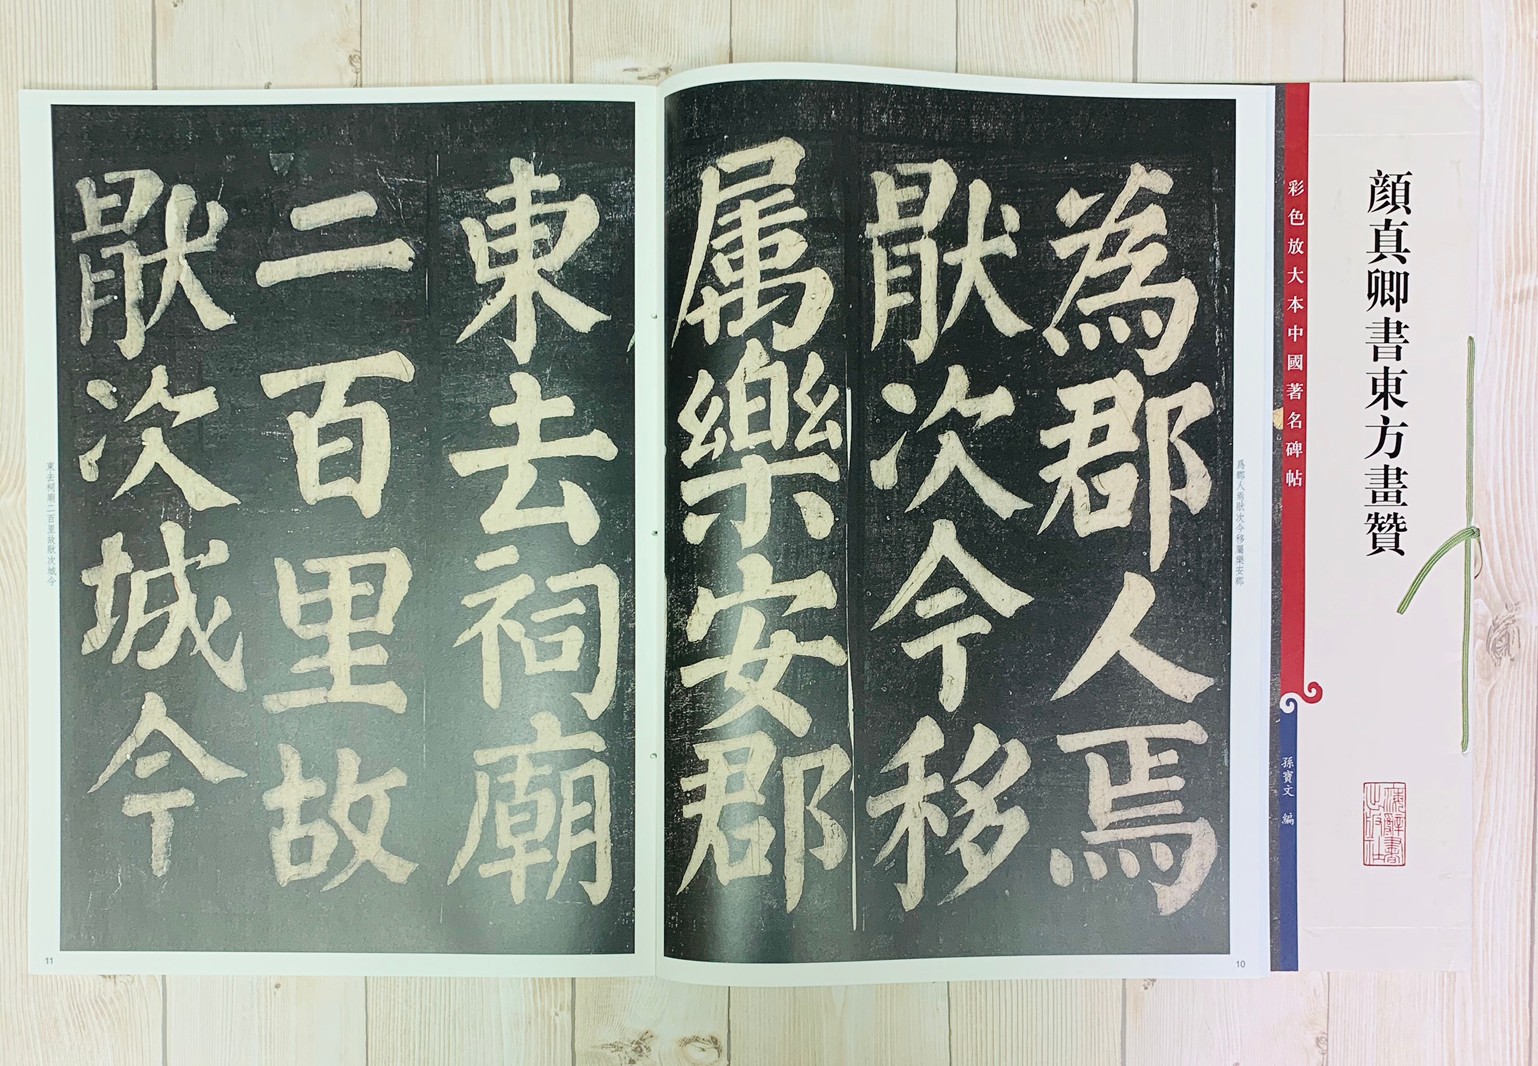 顔真卿書東方畫贊
彩色放大本中國著名碑帖
孫寶文 編
爲郡人焉猒次今移屬樂安郡
為郡人焉
猒次今移
属樂安郡
10
東去祠廟
二百里故
猒次城今
東去祠廟二百里故猒次城今
11